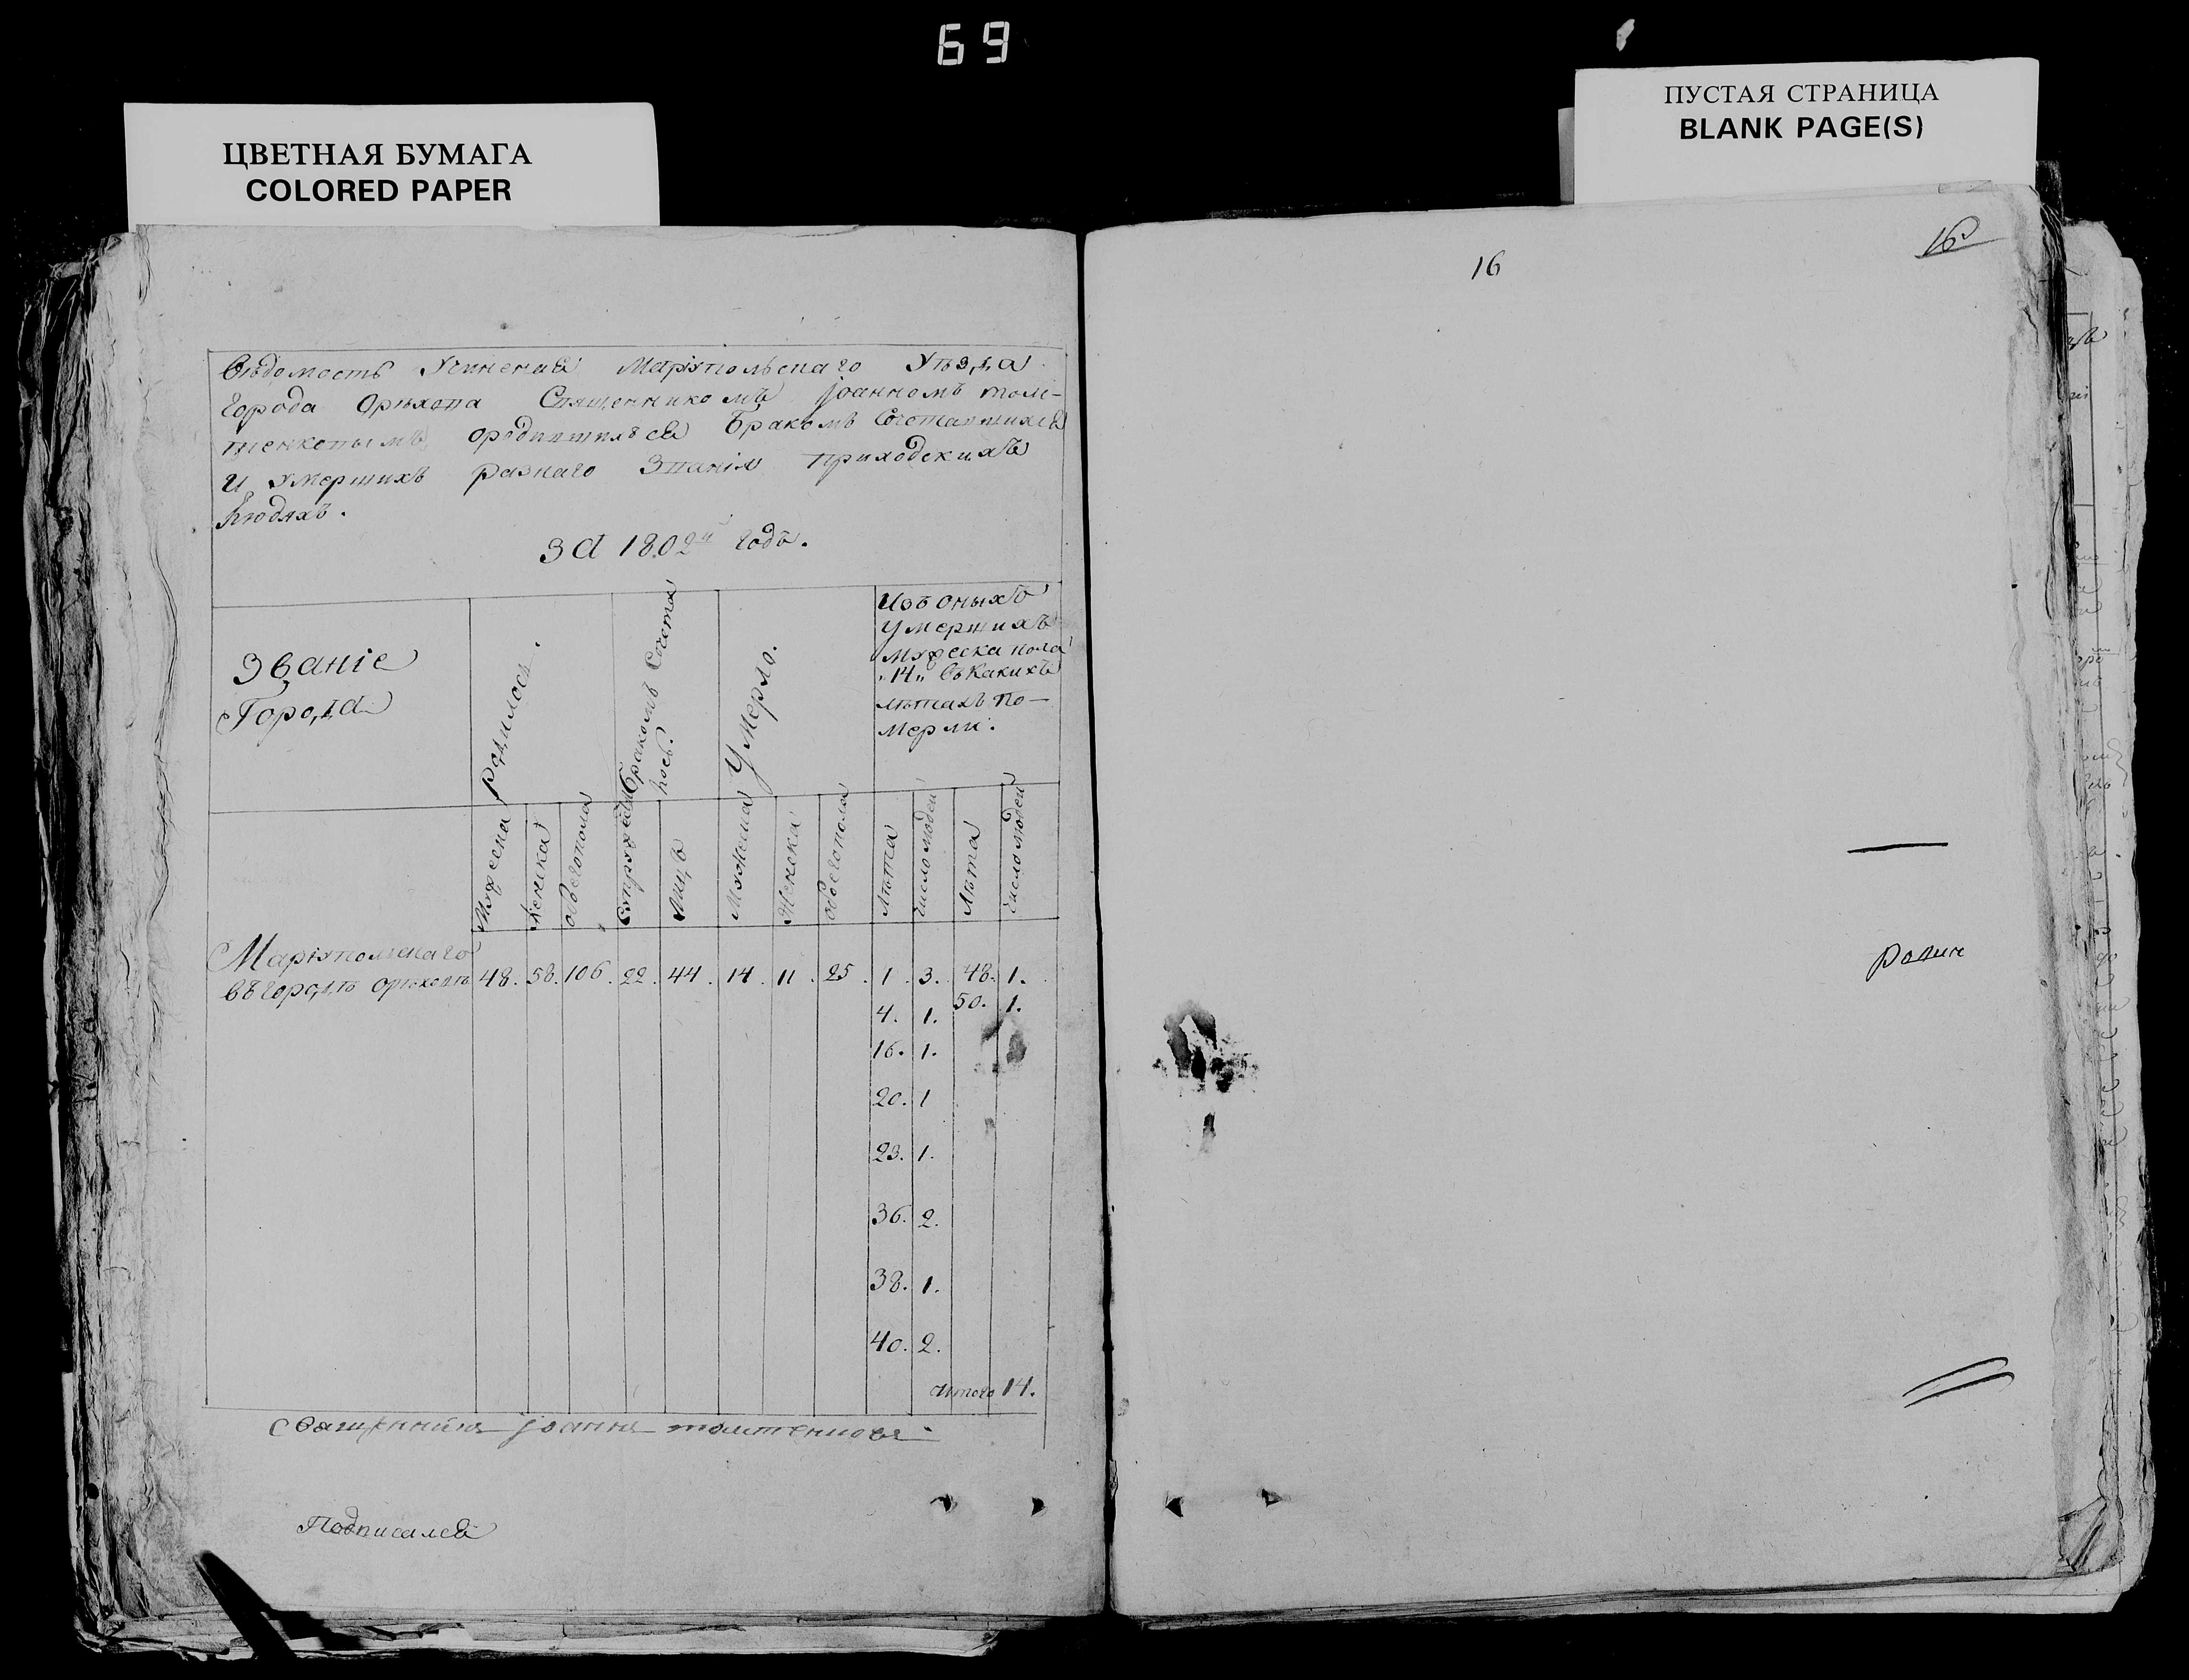 69
ЦВЕТНАЯ БУМАГА
COLORED PAPER
ПУСТАЯ СТРАНИЦА
BLANK PAGE(S)
Вѣдомость Учинения Маріупольскаго Уѣзда
города Орѣхова Священникомъ Іоанномъ толм-
о родившихся Бракомъ Сочетавшихся
и умершихъ разнаго Званія приходскихъ
Людяхъ.
За 1802й годъ.
Званіе
Города
Родилось.
Бракомъ Сочета
лось.
Умерло.
Изъ оныхъ
Умершихъ
Мужеска пола
"14" въ Какихъ
лѣтахъ по-
мерли.
Мужеска
Женска
обоегопола
Супружествъ
Лицъ
Мужеска
Женска
обоегополя
Лѣта
Число людей
Лѣта
Число людей
Маріупольскаго
въ городѣ орѣховѣ 48. 58. 106. 22. 44. 14. 11. 25. 1. 3. 48. 1.
4. 1. 50. 1.
16. 1.
20. 1
23. 1.
36. 2.
38. 1.
40. 2.
Итого 14.
священникъ Іоаннъ
Подписался
16
16